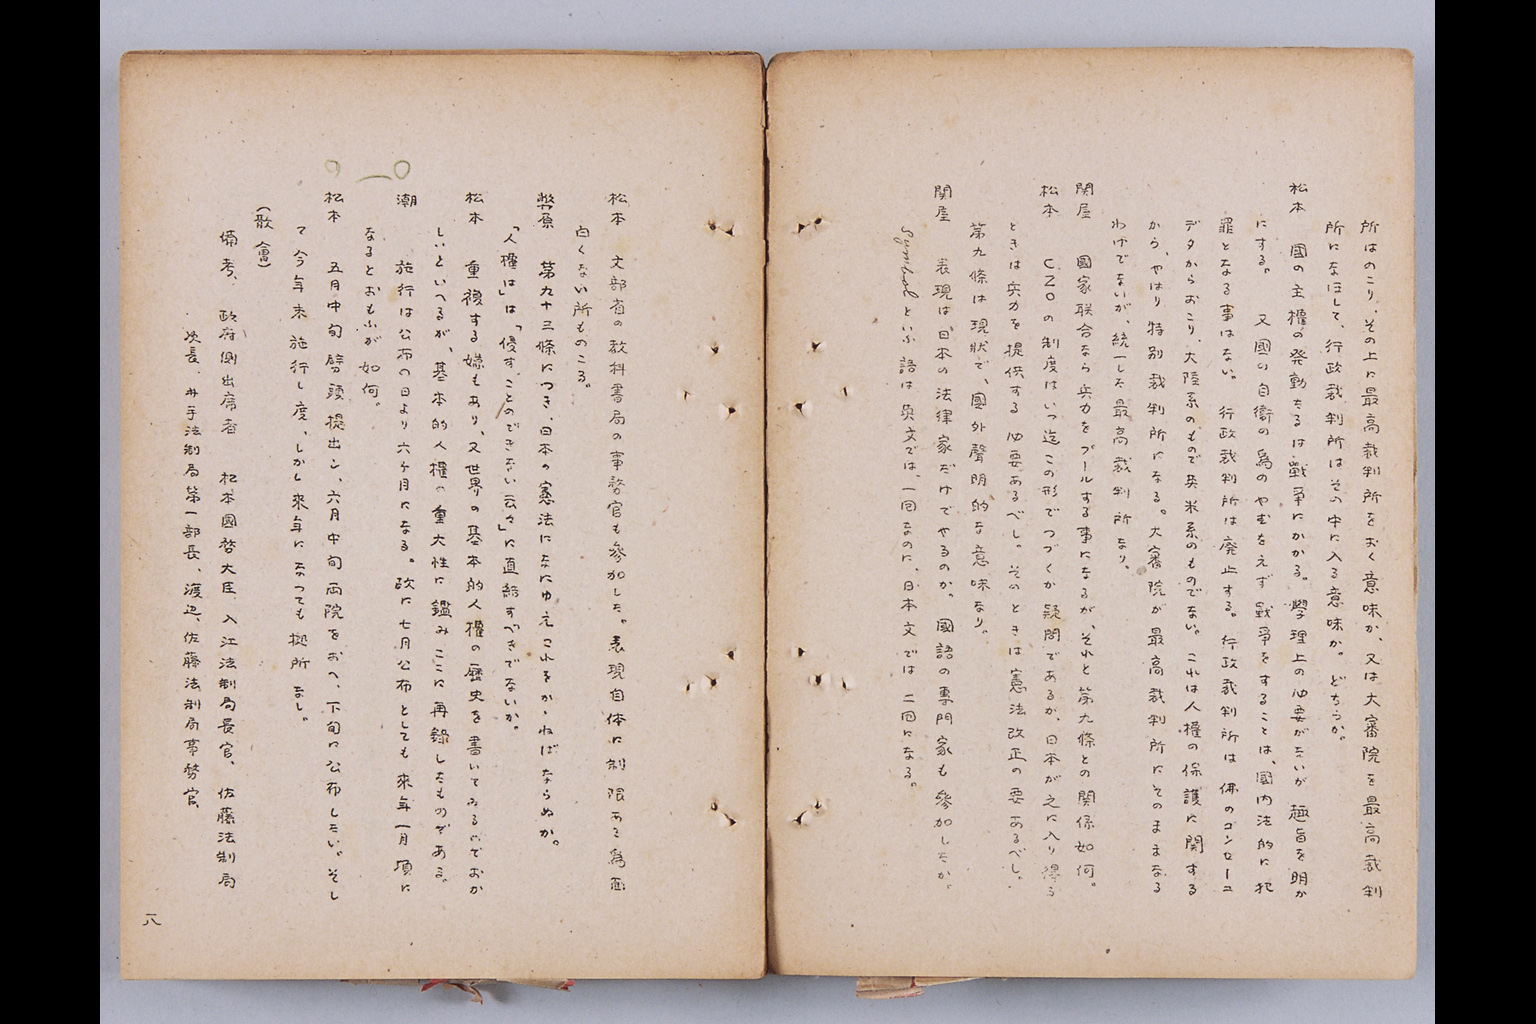 所はのこり、その上に最高裁判所をおく意味か、又は大審院を最高裁判
所になほして、行政裁判所はその中に入る意味か。どちらか。
松本　國の主權の発動たるは戰爭にかかる。學理上の必要がないが趣旨を明か
にする。又國の自衞の爲のやむをえず戰爭をすることは、國内法的に犯
罪となる事はない。行政裁判所は廃止する。行政裁判所は佛のコンセーユ
デタからおこり、大陸系のもので英米系のものでない。これは人權の保護に関する
から、やはり特別裁判所になる。大審院が最高裁判所にそのままなる
わけでないが、統一した最高裁判所なり。
関屋　國家联合なら兵力をプールする事になるが、それと第九條との関係如何。
松本　UNOの制度はいつ迄この形でつづくか疑問であるか、日本が之に入り得る
ときは兵力を提供する必要あるべし。そのときは憲法改正の要あるべし。
第九條は現狀で、國外聲明的な意味なり。
関屋　表現は日本の法律家だけでやるのか。國語の専門家も參加したか。
Symbolといふ語は英文では、一回なのに、日本文では二回になる。
松本　文部省の教科書局の事務官も參加した。表現自体に制限ある爲面
白くない所ものこる。
幣原　第九十三條につき、日本の憲法になにゆえこれをかゝねばならぬか。
「人權は」は「侵すことのできない云々」に直結すべきでないか。
松本　重複する嫌もあり、又世界の基本的人權の歷史を書いてゐるのでおか
しいといへるが、基本的人權の重大性に鑑みここに再錄したものである。
潮　施行は公布の日より六ヶ月になる。故に七月公布としても來年一月頃に
なるとおもふが如何。
松本　五月中旬劈頭提出シ、六月中旬両院をおへ、下旬に公布したい。そし
て今年末施行し度、しかし來年になつても拠所なし。
（散會）
備考、政府側出席者　松本國務大臣、入江法制局長官、佐藤法制局
次長、井手法制局第一部長、渡辺、佐藤法制局事務官、
一八